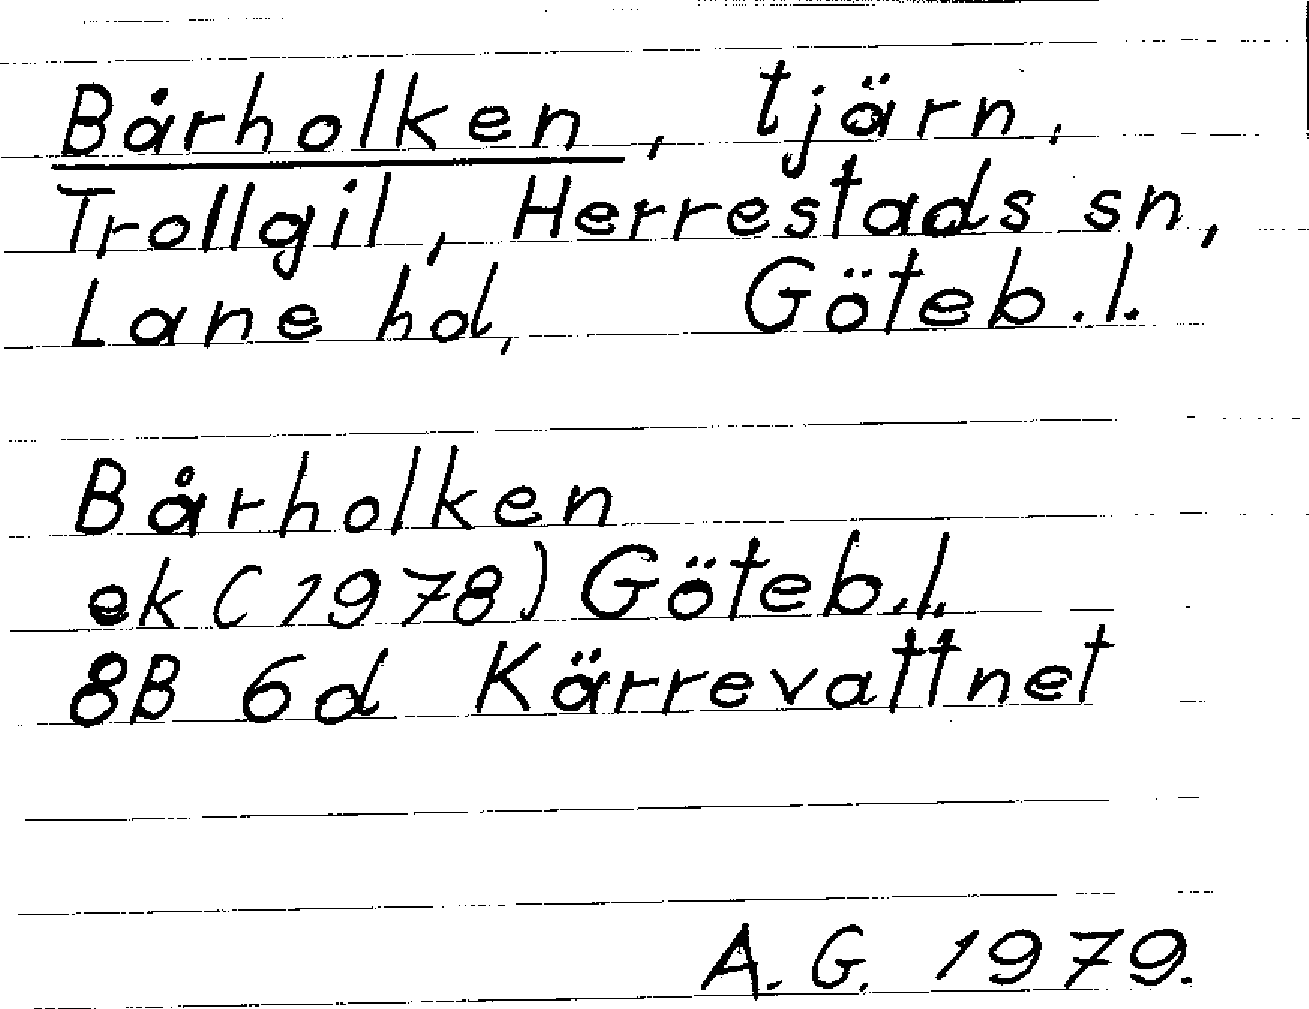 Bårholken, tjärn,
Trollgil, Herrestads sn,
Lane hd, Göteb.l.
Bårholken
ek (1978) Göteb.l.
8B 6d Kärrevattnet
A.G. 1979.